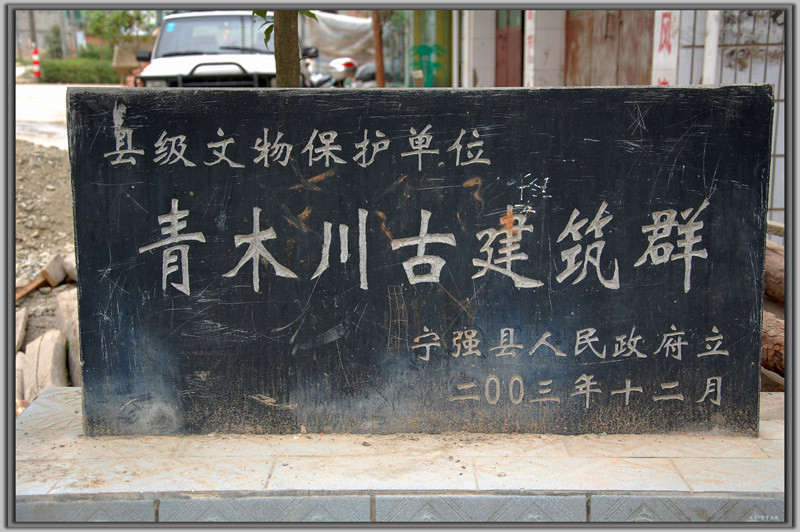 县级文物保护单位
青木川古建筑群
宁强县人民政府立
二00三年十二月
风